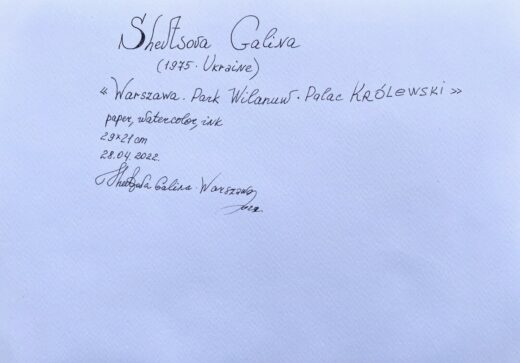 Shevtsova Galina
(1975. Ukraine)
« Warszawa. Park Wilanuw. Palac KRÓLEWSKI »
paper, watercolor, ink
29×21 cm
28.04 2022.
Shevtsova Galina. Warszawa
2022